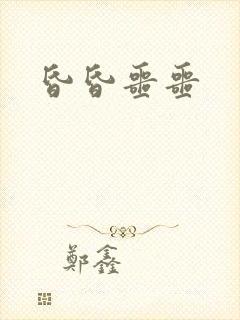 昏昏噩噩
鄭鑫